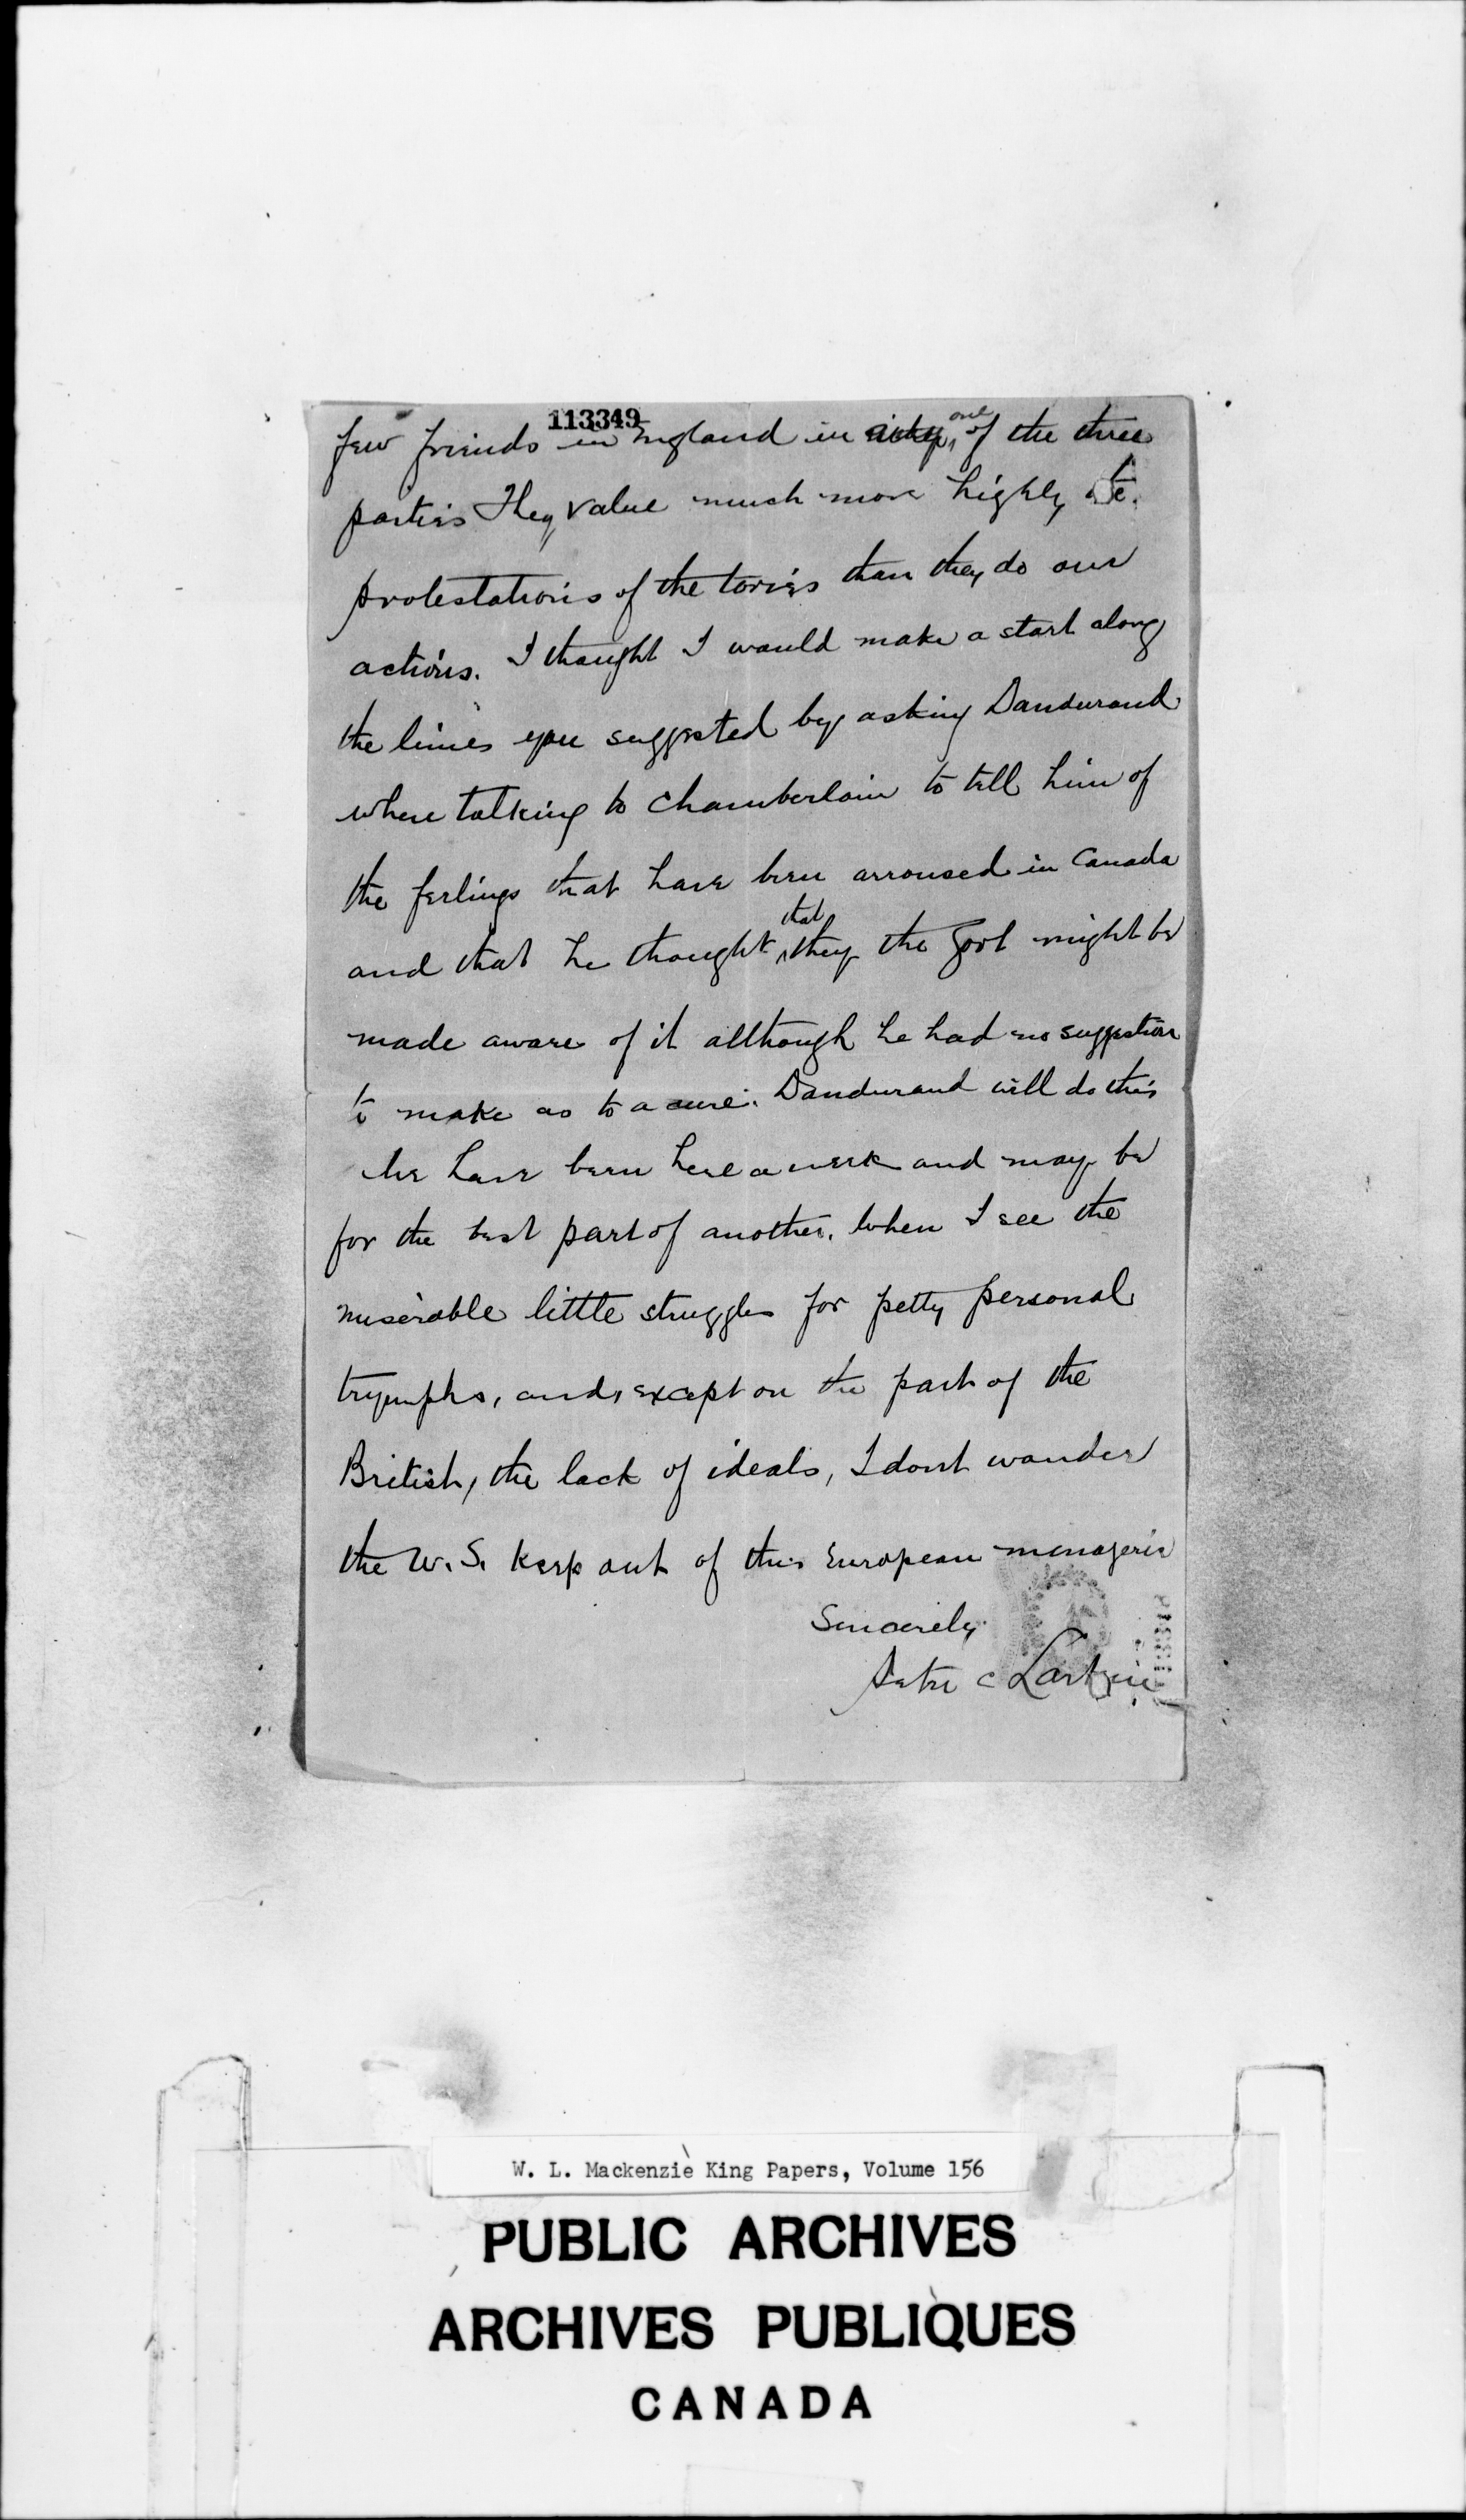 113349
few friends in England in one of the three
parties They value much more highly the
protestations of the tories than they do our
actions. I thought I would make a start along
the lines you suggested by asking Dandurand
when talking to Chamberlain to tell him of
the feelings that have been arroused in Canada
and that he thought that they the Govt might be
made aware of it although he had no suggestion
to make as to a cure. Dandurand will do this
We have been here a week and may be
for the best part of another. When I see the
miserable little struggles for petty personal
tryumphs, and, except on the part of the
British, the lack of ideals, I dont wonder
the U.S. keep out of this European menagerie
Sincerely
Peter C Larkin
W. L. Mackenzie King Papers, Volume 156
PUBLIC ARCHIVES
ARCHIVES PUBLIQUES
CANADA